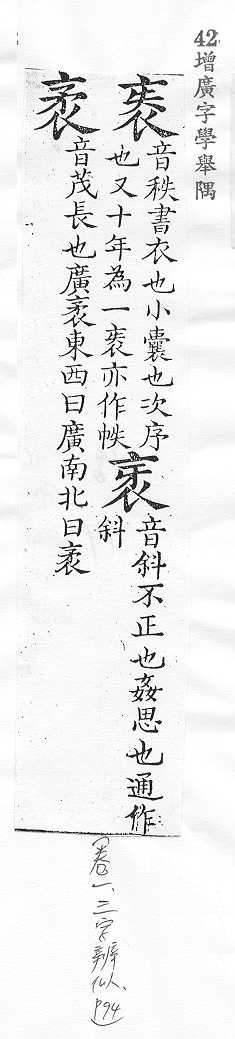 42 增廣字學舉隅
袠
音秩書衣也小囊也次序
也又十年為一袠亦作帙
衺
音斜不正也姦思也通作
斜
袤
音茂長也廣袤東西曰廣南北曰袤
(卷一、三字辨似、P94)